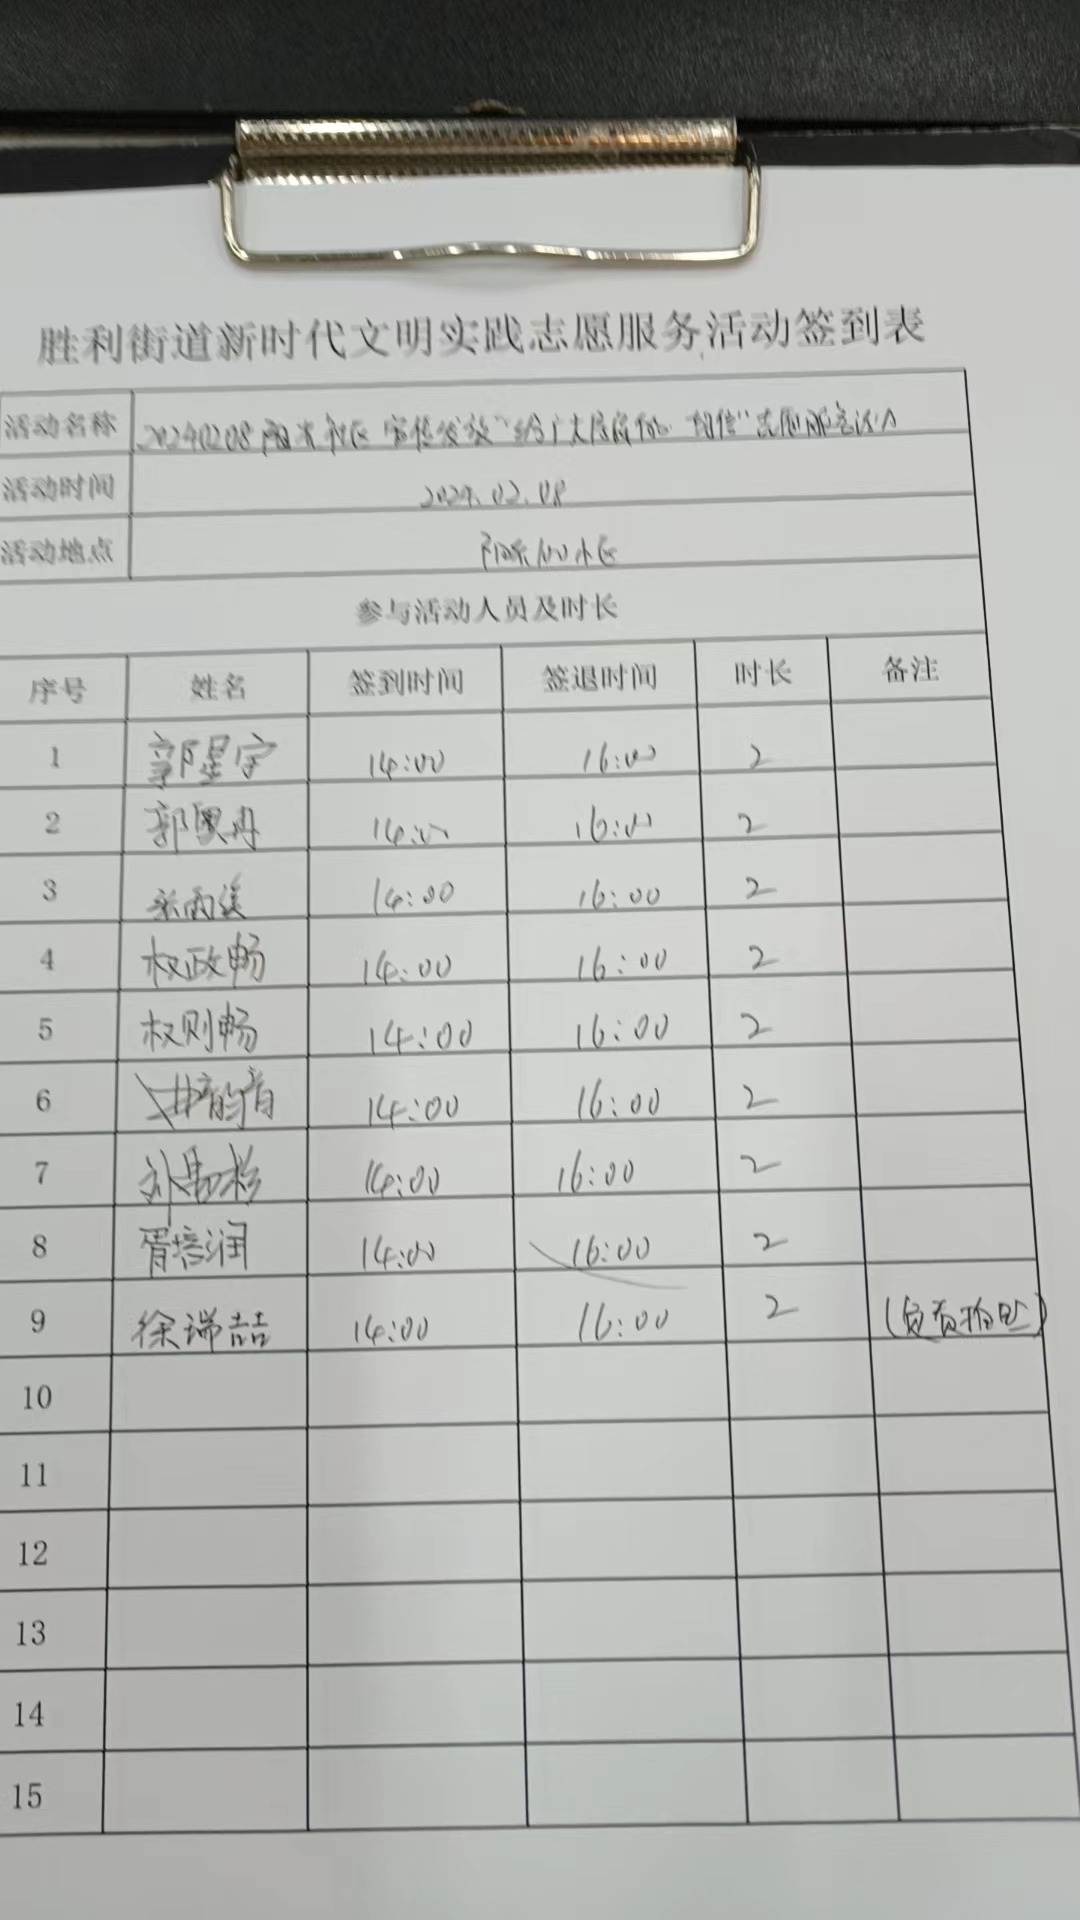 胜利街道新时代文明实践志愿服务活动签到表
活动名称 20240208阳光社区"宣传发放"给广大居民的一封信"志愿服务活动
活动时间 2024.02.08
活动地点 阳光100小区
参与活动人员及时长
序号 姓名 签到时间 签退时间 时长 备注
1 郭星宇 14:00 16:00 2
2 郭 14:00 16:00 2
3 雨 14:00 16:00 2
4 权政畅 14:00 16:00 2
5 权则畅 14:00 16:00 2
6 14:00 16:00 2
7 14:00 16:00 2
8 胥培润 14:00 16:00 2
9 徐瑞喆 14:00 16:00 2 (负责拍照)
10
11
12
13
14
15